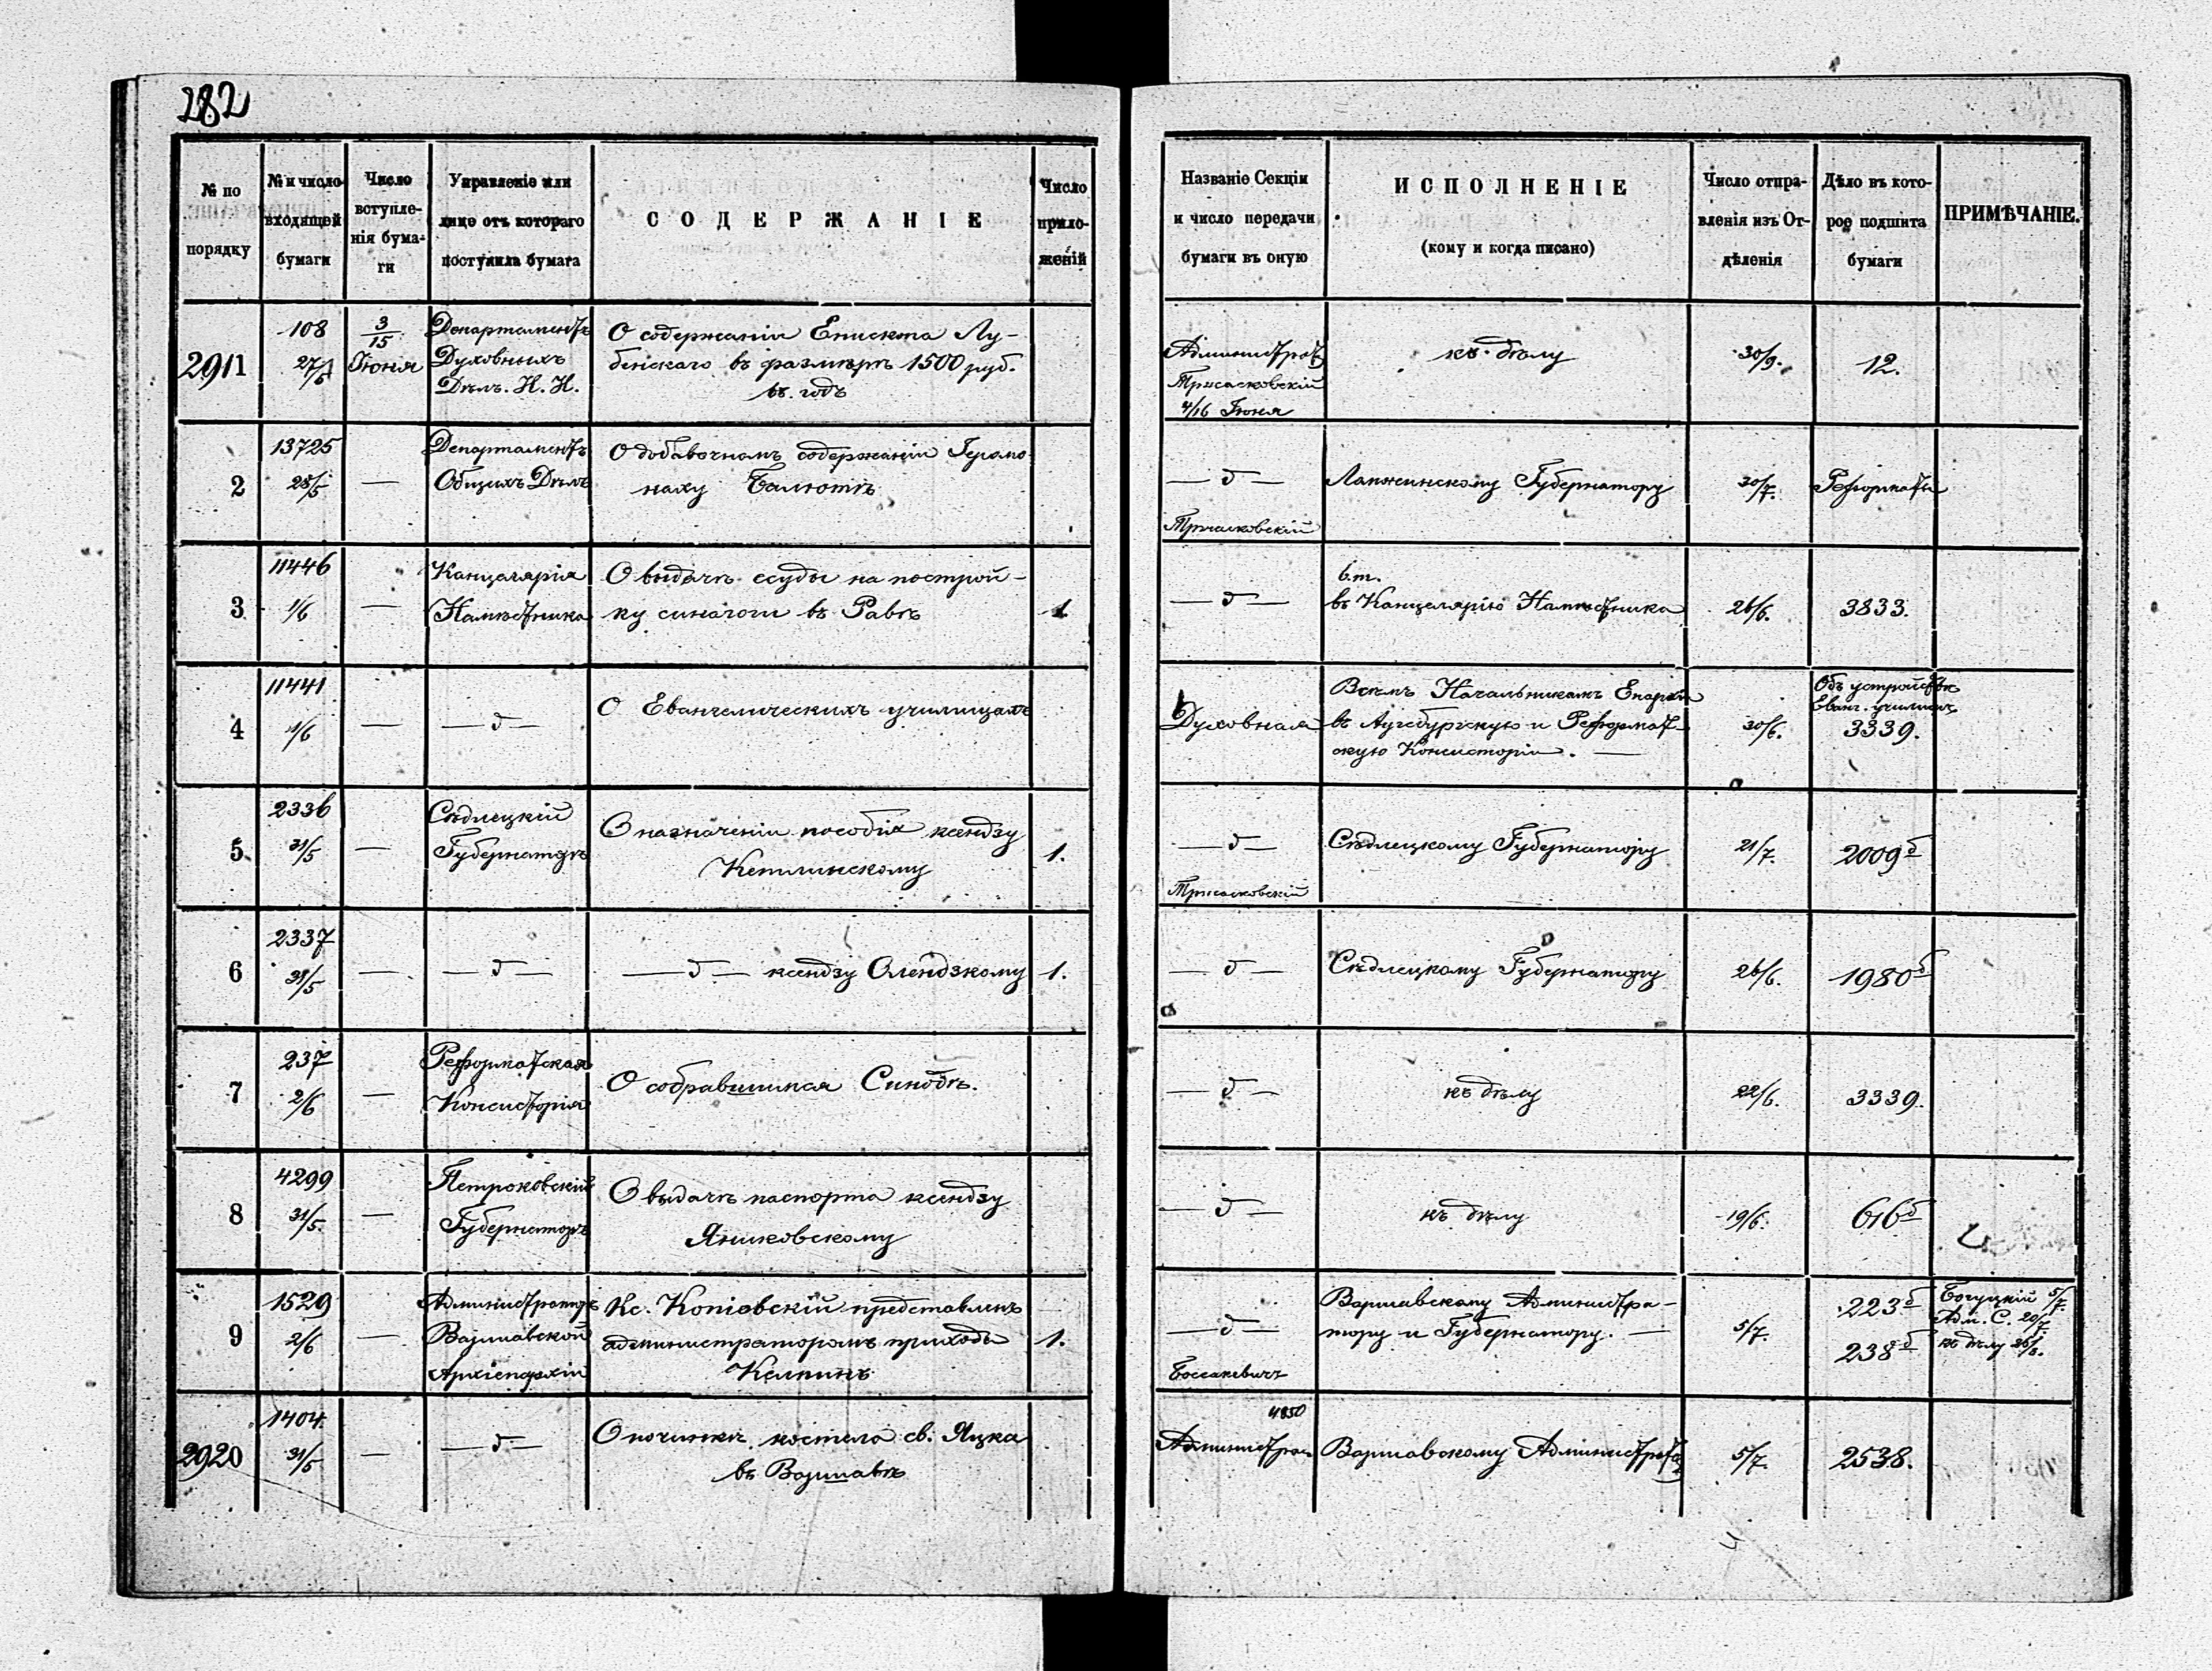 282
№ по
порядку
№ и число
входящей
бумаги
Число
вступле-
нія бума-
ги
Управленіе или
лице отъ котораго
поступила бумага
СОДЕРЖАНІЕ
Число
прило-
женій
Названіе Секціи
и число передачи
бумаги въ оную
ИСПОЛНЕНІЕ
(кому и когда писано)
Число отпра-
вленія изъ От-
дѣленія
Дѣло въ кото-
рое подшита
бумаги
ПРИМѢЧАНІЕ.
2911
108
27/5
3/15
Іюня
Департаментъ
Духовныхъ
Дѣлъ. И. И.
О содержаніи Епископа Лу-
бенскаго въ размѣрѣ 1500 руб.
въ годъ
4/16 Іюня
къ дѣлу
30/9.
12.
2
13725
28/5
—
Департаментъ
Общихъ Дѣлъ
О добавочномъ содержаніи Іеромо
наху
— d —
Ломжинскому Губернатору
30/7.
3
11446
1/6
—
Канцелярія
Намѣстника
О выдачѣ ссуды на построй-
ку синагоги въ Равѣ
1
— d —
в Канцелярію Намѣстника
26/6.
3833.
4
11441
1/6
—
— d —
О Евангелическихъ училищахъ
Духовная
Всѣмъ Начальникамъ Епархій
въ Аугсбургскую и Реформат-
скую Консисторіи. —
30/6.
Объ устройствѣ
Еванг. училищъ
3339.
5
2336
31/5
—
Сѣдлецкій
Губернаторъ
О назначеніи пособія ксендзу
Кетлинскому
1.
— d —
Сѣдлецкому Губернатору
21/7.
2009б
6
2337
31/5
—
— d —
— d — ксендзу Олендзкому
1.
— d —
Сѣдлецкому Губернатору
26/6.
1980б
7
237
2/6
—
Реформатская
Консисторія
О собравшимся Синодѣ.
— d —
къ дѣлу
22/6.
3339.
8
4299
31/5.
—
Петроковскій
Губернаторъ
О выдачѣ паспорта ксендзу
Яниковскому
— d —
къ дѣлу
19/6.
616б
9
1529
2/6
—
Администраторъ
Варшавской
Архіепархіи
Кс. Копіовскій представленъ
администраторомъ прихода
1.
— d —
Варшавскому Администра-
тору и Губернатору. —
5/7.
223б
238б
Богуцкій 5/7.
Адм. С. 20/7.
къ дѣлу
2920
1404.
31/5
—
— d —
О починкѣ костела св. Яцка
въ Варшавѣ
4850
Администрат.
Варшавскому Администрат
5/7.
2538.